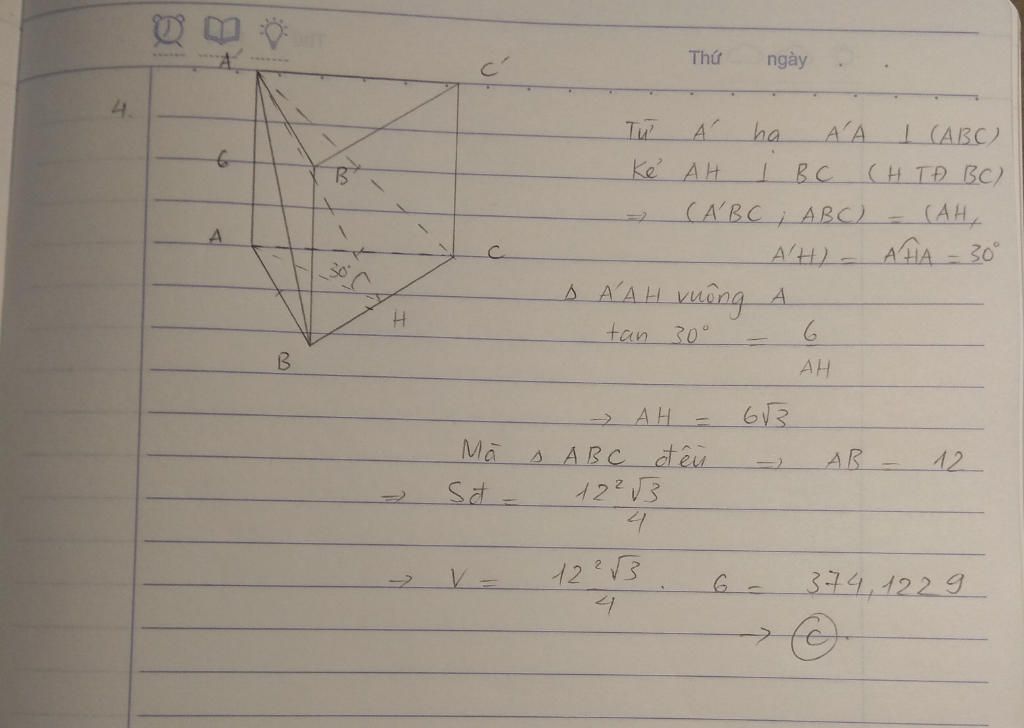 Thứ ngày . .
4.
A' C'
6 B'
A C
30°
H
B
Từ A' hạ A'A ⊥ (ABC)
Kẻ AH ⊥ BC (H TĐ BC)
=> (A'BC ; ABC) = (AH,
A'H) = A'HA = 30°
Δ A'AH vuông A
tan 30° = 6/AH
→ AH = 6√3
Mà Δ ABC đều => AB = 12
=> Sđ = 12²√3/4
→ V = 12²√3/4 . 6 = 374,1229
→ C.